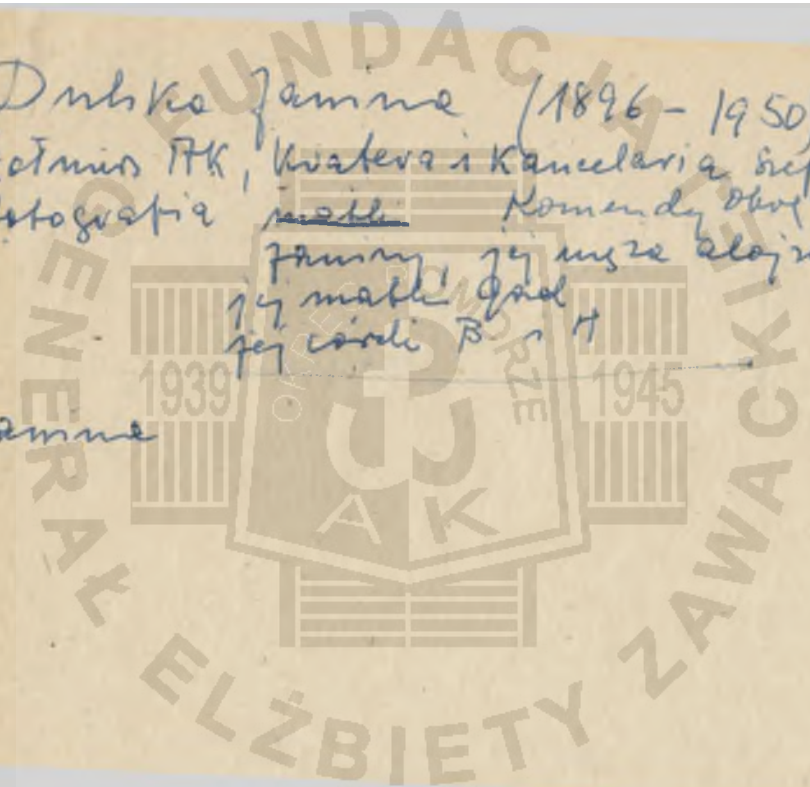 Dulska Janina (1896 - 1950)
ołnierz AK, Kwatera i Kancelaria Szef
fotografia matki Komendy Okrę
Janiny, jej męża Alojz
jej matki
jej córki B i H
anina
FUNDACJA GENERAŁ ELŻBIETY ZAWACKIEJ
OKRĘG POMORZE
1939 1945
AK